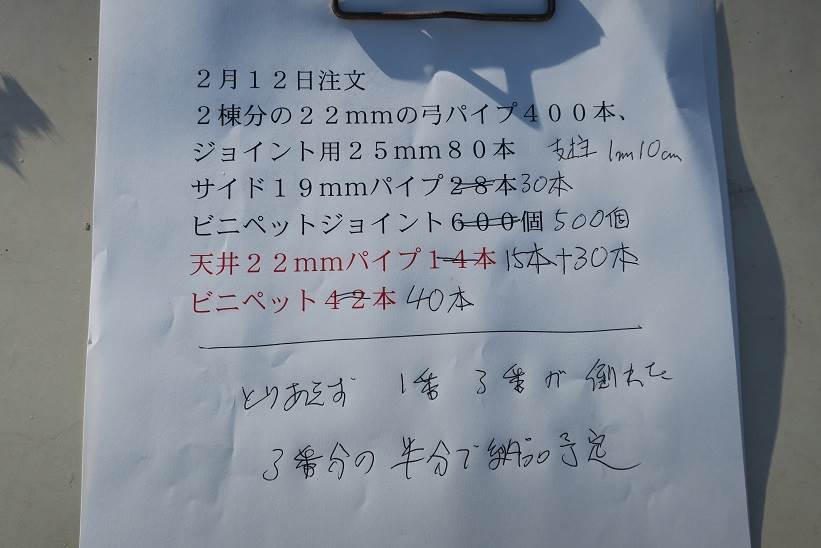 ２月１２日注文
２棟分の２２ｍｍの弓パイプ４００本、
ジョイント用２５ｍｍ８０本 支柱 1m10cm
サイド１９ｍｍパイプ２８本 30本
ビニペットジョイント６００個 500個
天井２２ｍｍパイプ１４本 15本+30本
ビニペット４２本 40本
とりあえず 1番 3番が 倒れた
3番分の 半分で納品予定